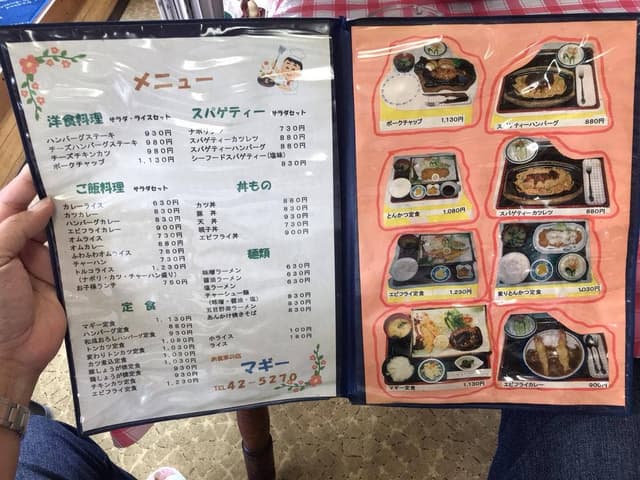 メニュー
洋食料理 サラダ・ライスセット
ハンバーグステーキ 930円
チーズハンバーグステーキ 980円
チーズチキンカツ 980円
ポークチャップ 1,130円
スパゲティー サラダセット
ナポリタン 730円
スパゲティーカツレツ 880円
スパゲティーハンバーグ 880円
シーフードスパゲティー(塩味) 830円
ご飯料理 サラダセット
カレーライス 630円
カツカレー 830円
ハンバーグカレー 830円
エビフライカレー 900円
オムライス 730円
オムカレー 880円
ふわふわオムライス 780円
チャーハン 730円
トルコライス 1,230円
(ナポリ・カツ・チャーハン盛り)
お子様ランチ 750円
丼もの
カツ丼 880円
豚丼 830円
天丼 930円
親子丼 730円
エビフライ丼 900円
麺類
味噌ラーメン 630円
醤油ラーメン 630円
塩ラーメン 630円
チャーシュー麺 830円
(味噌・醤油・塩)
五目野菜ラーメン 830円
あんかけ焼きそば 830円
小ライス 100円
ライス 180円
定食
マギー定食 1,130円
ハンバーグ定食 880円
和風おろしハンバーグ定食 930円
トンカツ定食 1,080円
変わりトンカツ定食 1,030円
カツ煮込定食 1,030円
豚しょうが焼定食 930円
鶏しょうが焼定食 930円
チキンカツ定食 930円
エビフライ定食 1,230円
お食事の店
マギー
TEL 42-5270
ポークチャップ 1,130円
スパゲティーハンバーグ 880円
とんかつ定食 1,080円
スパゲティーカツレツ 880円
エビフライ定食 1,230円
変りとんかつ定食 1,030円
マギー定食 1,130円
エビフライカレー 900円